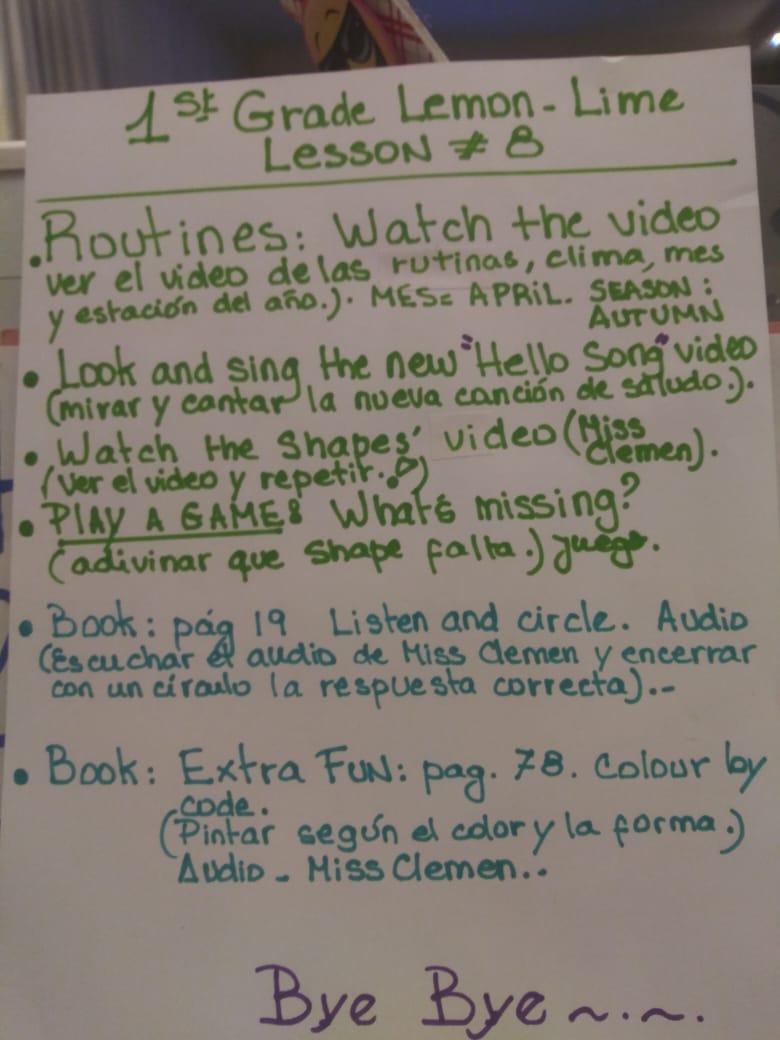 1st Grade Lemon-Lime
LESSON # 8
• Routines: Watch the video
ver el video de las rutinas, clima, mes
y estación del año.). MES= APRIL. SEASON:
AUTUMN
• Look and sing the new "Hello Song" video
(mirar y cantar la nueva canción de saludo.).
• Watch the Shapes' video (Miss
Clemen).
(Ver el video y repetir.)
• PLAY A GAME: What's missing?
(adivinar que shape falta.) juego.
• Book: pág 19 Listen and circle. Audio
(Escuchar el audio de Miss Clemen y encerrar
con un círculo la respuesta correcta).-
• Book: Extra FUN: pag. 78. Colour by
code.
(Pintar según el color y la forma.)
Audio - Miss Clemen..
Bye Bye ~.~.